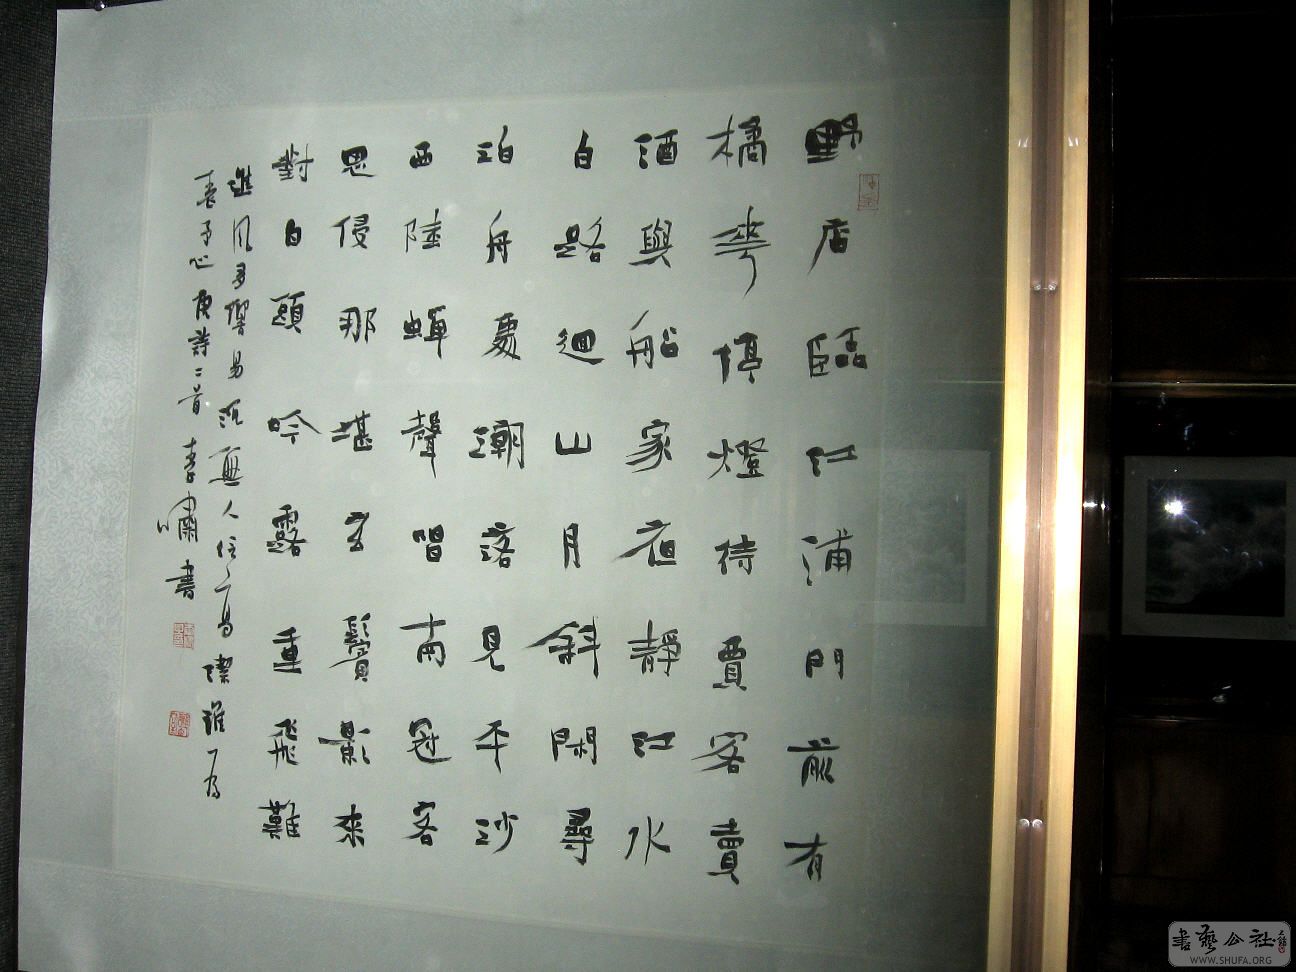 野店臨江浦門前有
橘華停燈待賈客賣
酒與船家夜靜江水
白路迴山月斜閑尋
泊舟處潮落見平沙
西陸蟬聲唱南冠客
思侵那堪玄鬢影來
對白頭吟露重飛難
進風多響易沉無人信高潔誰為
表予心唐詩二首李嘯書
書藝公社
WWW.SHUFA.ORG